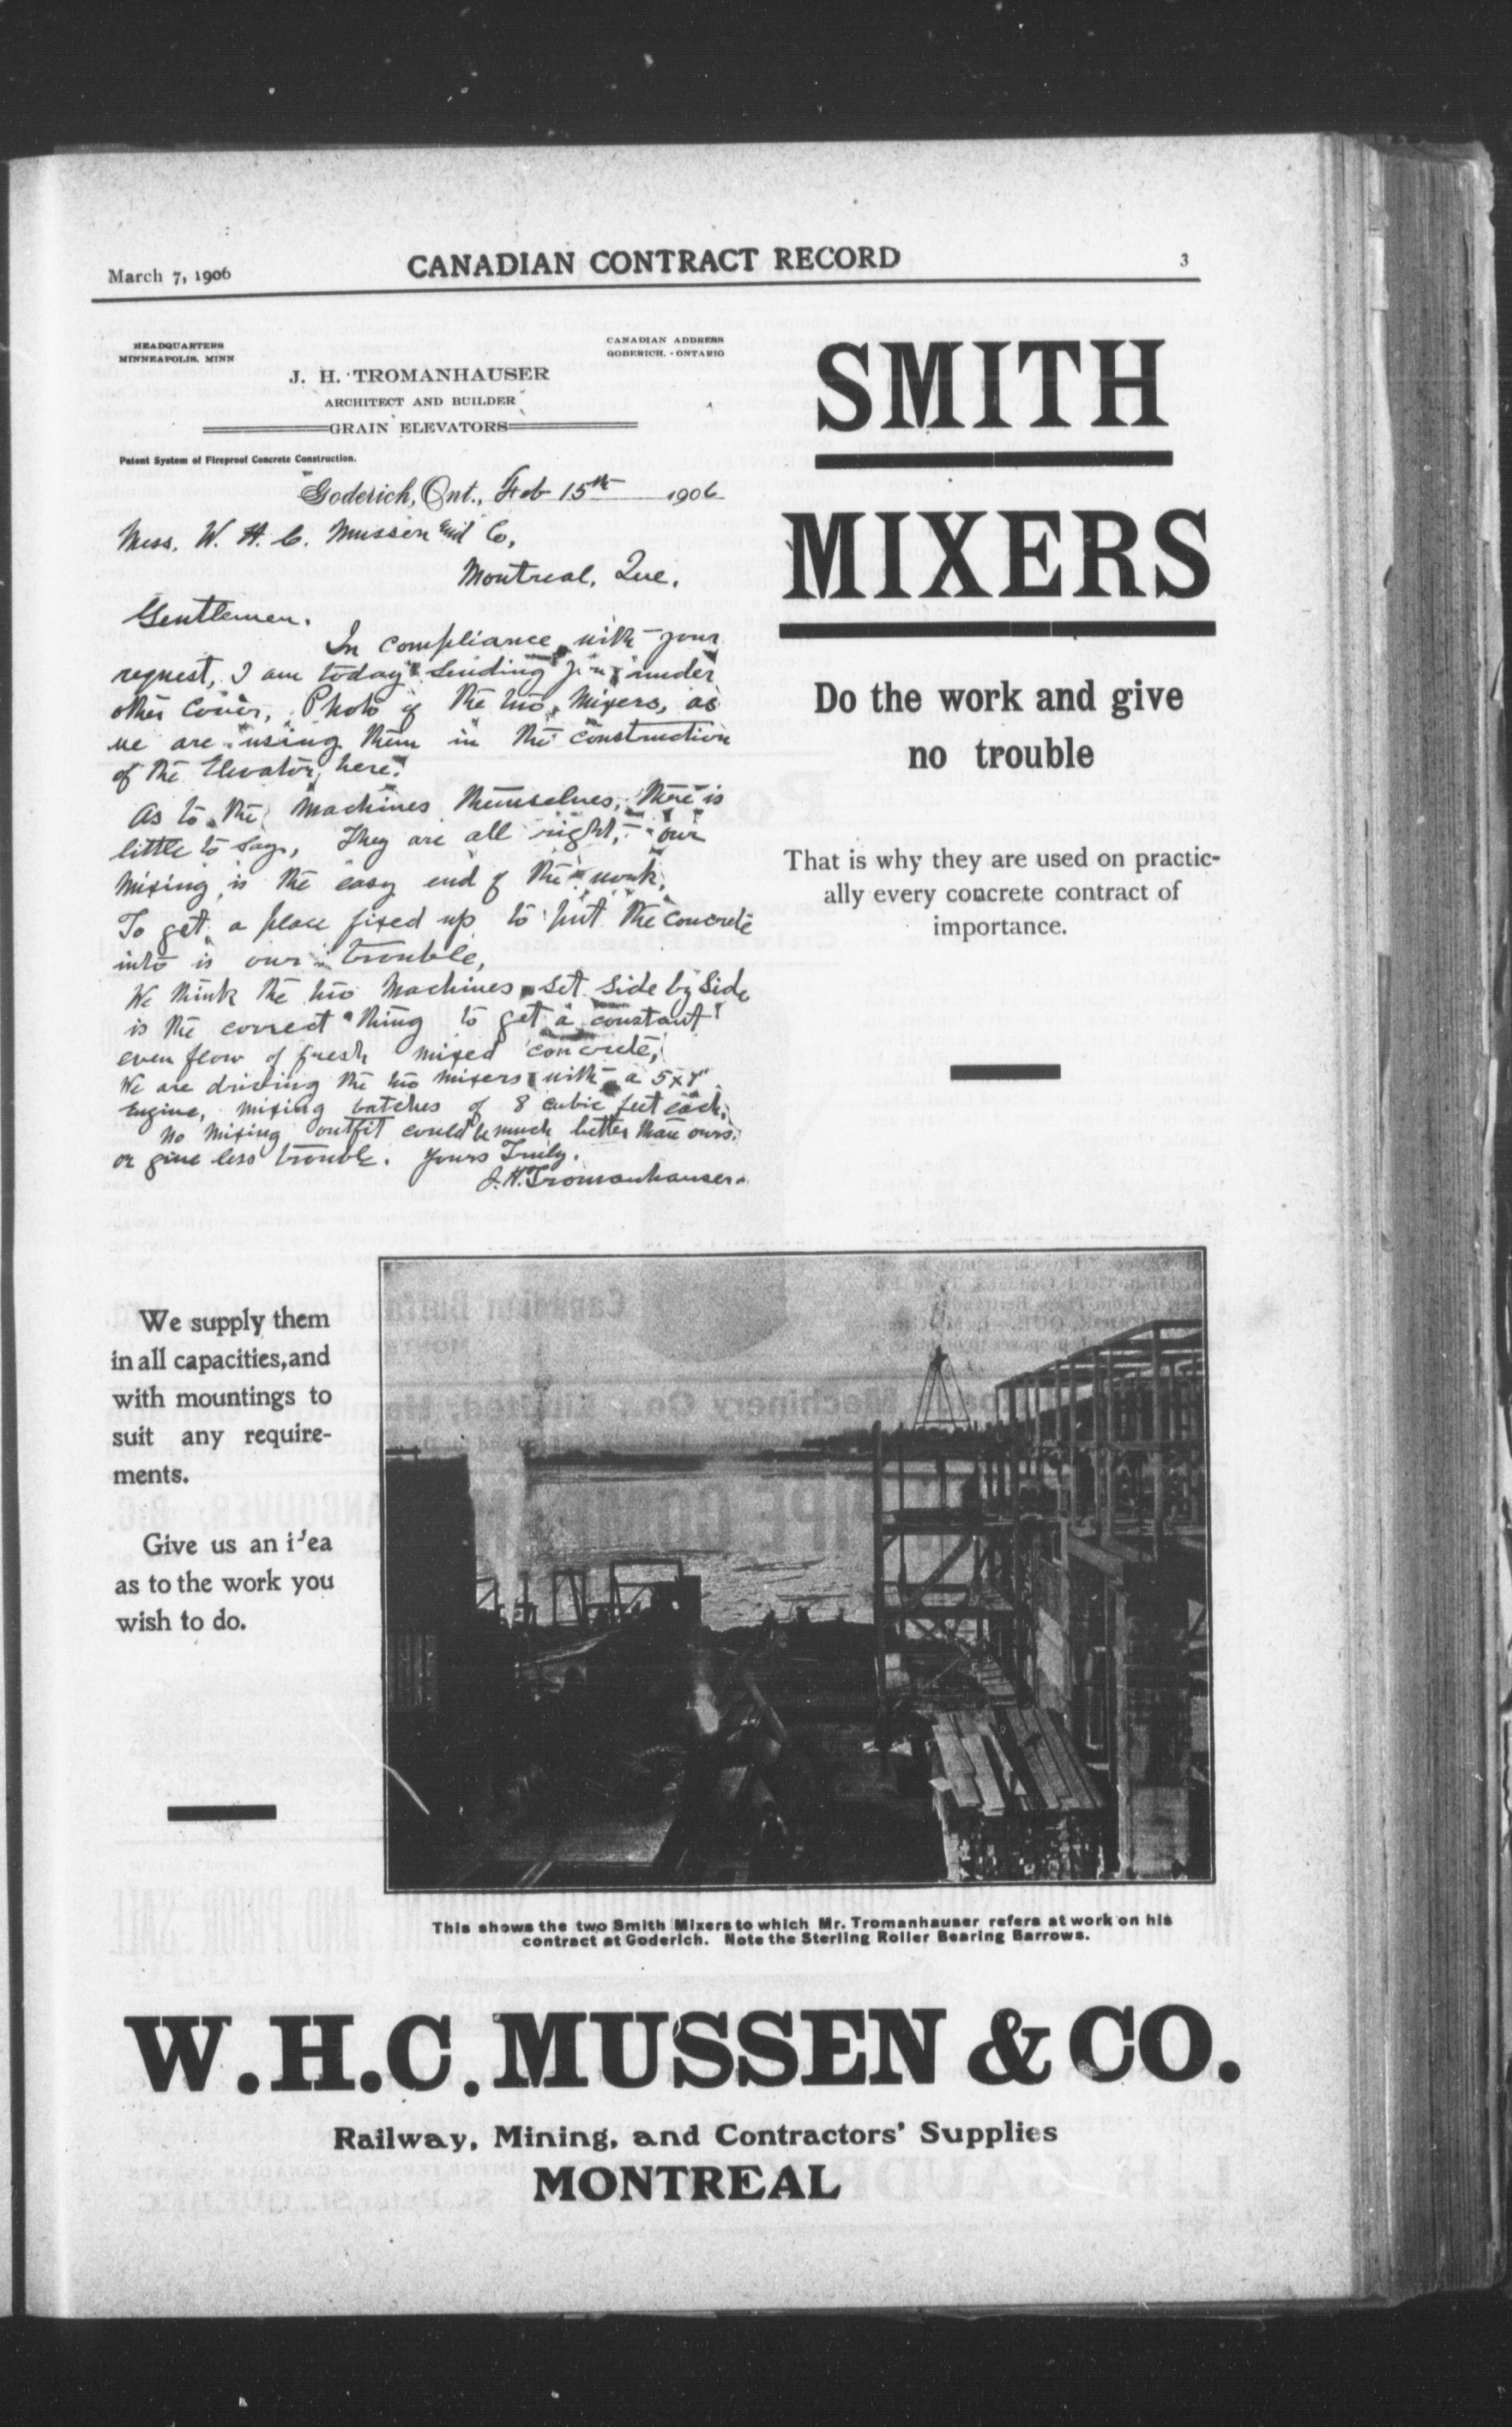 March 7, 1906
CANADIAN CONTRACT RECORD
3
HEADQUARTERS
MINNEAPOLIS, MINN
CANADIAN ADDRESS
GODERICH, - ONTARIO
J. H. TROMANHAUSER
ARCHITECT AND BUILDER
GRAIN ELEVATORS
Patent System of Fireproof Concrete Construction.
Goderich, Ont., Feb 15th 1906
Mess. W. H. C. Mussen and Co,
Montreal, Que.
Gentlemen.
In compliance with your
request, I am today sending you under
other cover, Photo of the two Mixers, as
we are using them in the construction
of the Elevator here.
As to the Machines themselves, there is
little to say, They are all right, our
mixing is the easy end of the work,
To get a place fixed up to put the concrete
into is our trouble,
We think the two Machines set side by side
is the correct thing to get a constant
even flow of fresh mixed concrete,
We are driving the two mixers with a 5x7"
Engine, mixing batches of 8 cubic feet each,
No mixing outfit could be much better than ours,
or give less trouble. Yours Truly.
J. H. Tromanhauser.
SMITH
MIXERS
Do the work and give
no trouble
That is why they are used on practic-
ally every concrete contract of
importance.
We supply them
in all capacities, and
with mountings to
suit any require-
ments.
Give us an i'ea
as to the work you
wish to do.
This shows the two Smith Mixers to which Mr. Tromanhauser refers at work on his
contract at Goderich. Note the Sterling Roller Bearing Barrows.
W. H. C. MUSSEN & CO.
Railway, Mining, and Contractors' Supplies
MONTREAL